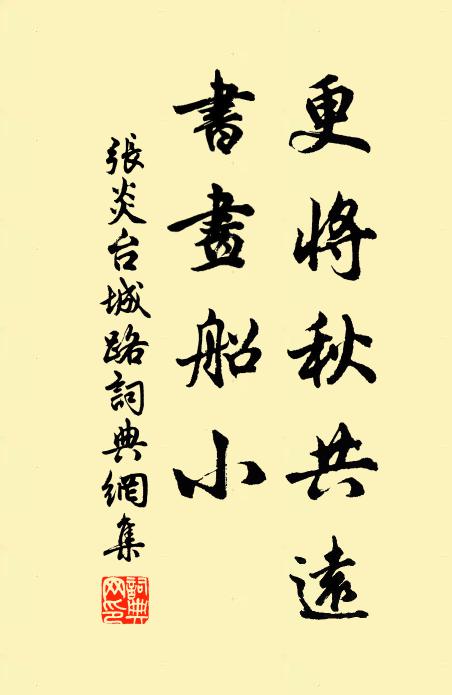 更将秋共遠
書畫船小
張炎台城路詞典網集
詞典网印